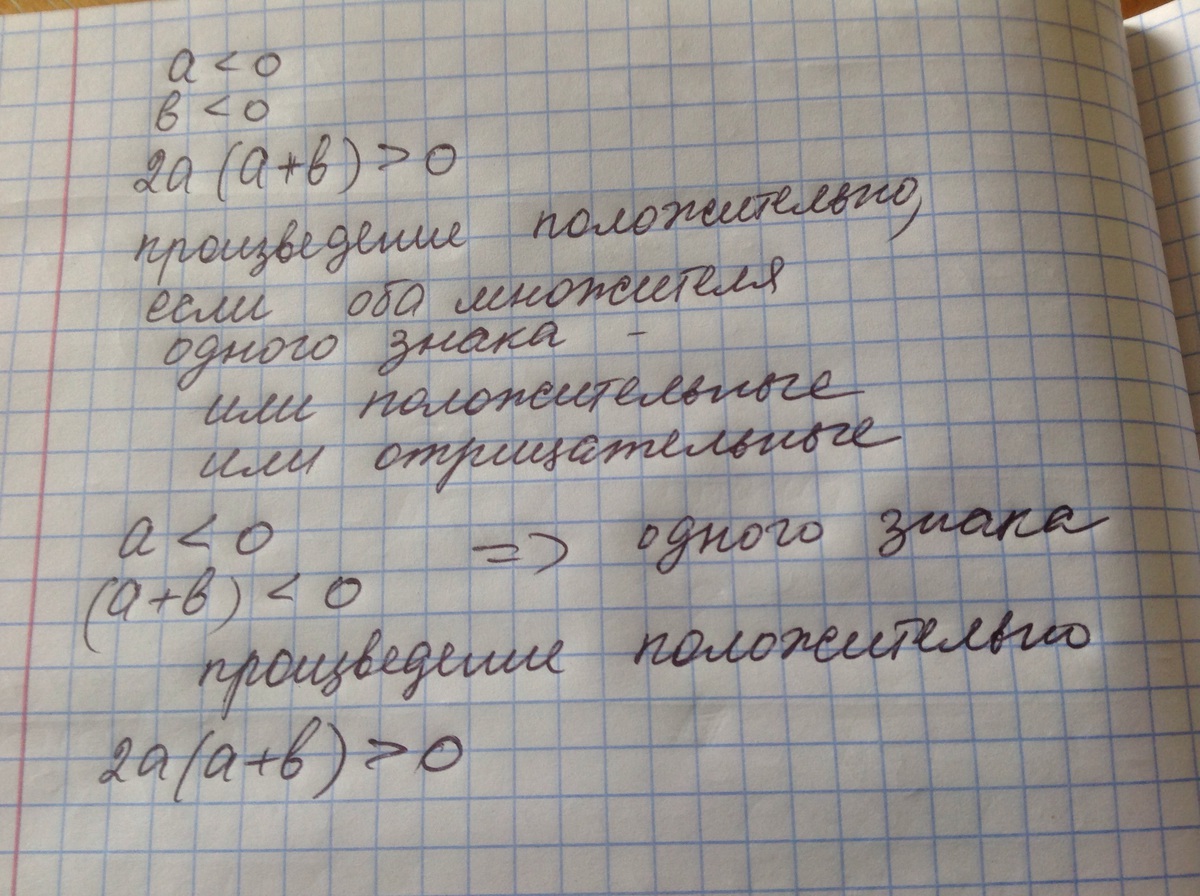 а < 0
в < 0
2а (а+в) > 0
произведение положительно,
если оба множителя
одного знака -
или положительные
или отрицательные
а < 0 => одного знака
(а+в) < 0
произведение положительно
2а(а+в) > 0